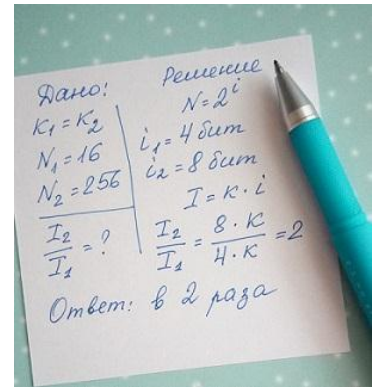 Дано:
K₁ = K₂
N₁ = 16
N₂ = 256
I₂/I₁ = ?
Решение
N = 2ⁱ
i₁ = 4 бит
i₂ = 8 бит
I = K · i
I₂/I₁ = 8 · K/4 · K = 2
Ответ: в 2 раза